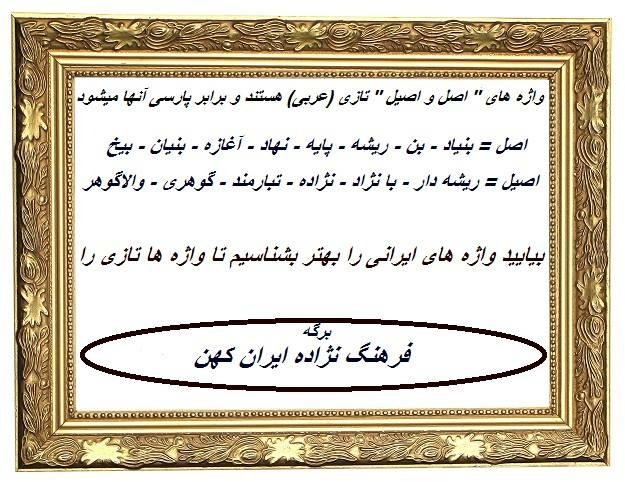 واژه های " اصل و اصیل " تازی (عربی) هستند و برابر پارسی آنها میشود
اصل = بنیاد - بن - ریشه - پایه - نهاد - آغازه - بنیان - بیخ
اصیل = ریشه دار - با نژاد - نژاده - تبارمند - گوهری - والاگوهر
بیایید واژه های ایرانی را بهتر بشناسیم تا واژه ها تازی را
برگه
فرهنگ نژاده ایران کهن